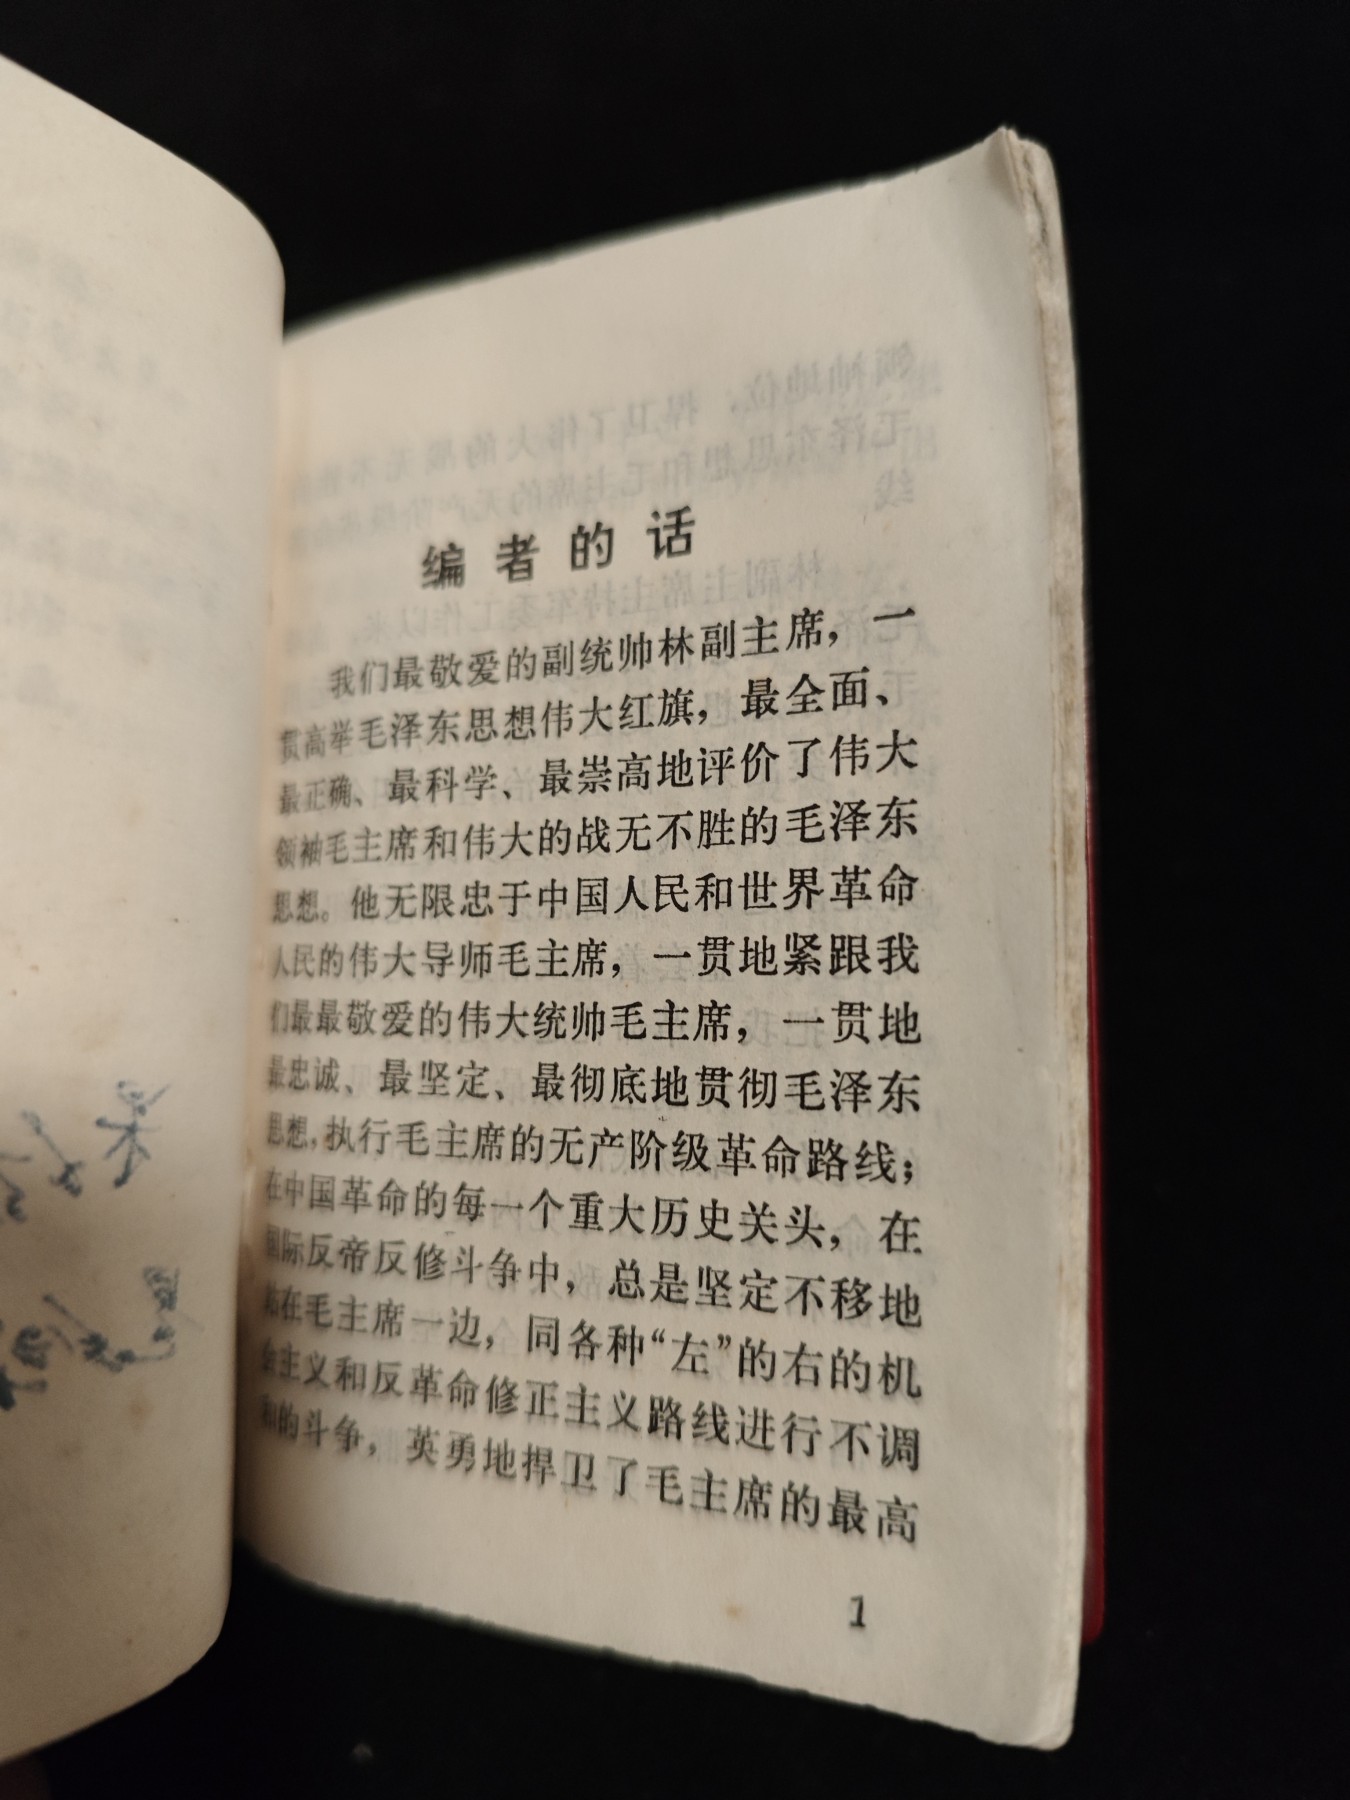 编者的话
我们最敬爱的副统帅林副主席，一
贯高举毛泽东思想伟大红旗，最全面、
最正确、最科学、最崇高地评价了伟大
领袖毛主席和伟大的战无不胜的毛泽东
思想。他无限忠于中国人民和世界革命
人民的伟大导师毛主席，一贯地紧跟我
们最最敬爱的伟大统帅毛主席，一贯地
最忠诚、最坚定、最彻底地贯彻毛泽东
思想，执行毛主席的无产阶级革命路线；
在中国革命的每一个重大历史关头，在
国际反帝反修斗争中，总是坚定不移地
站在毛主席一边，同各种“左”的右的机
会主义和反革命修正主义路线进行不调
和的斗争，英勇地捍卫了毛主席的最高
1